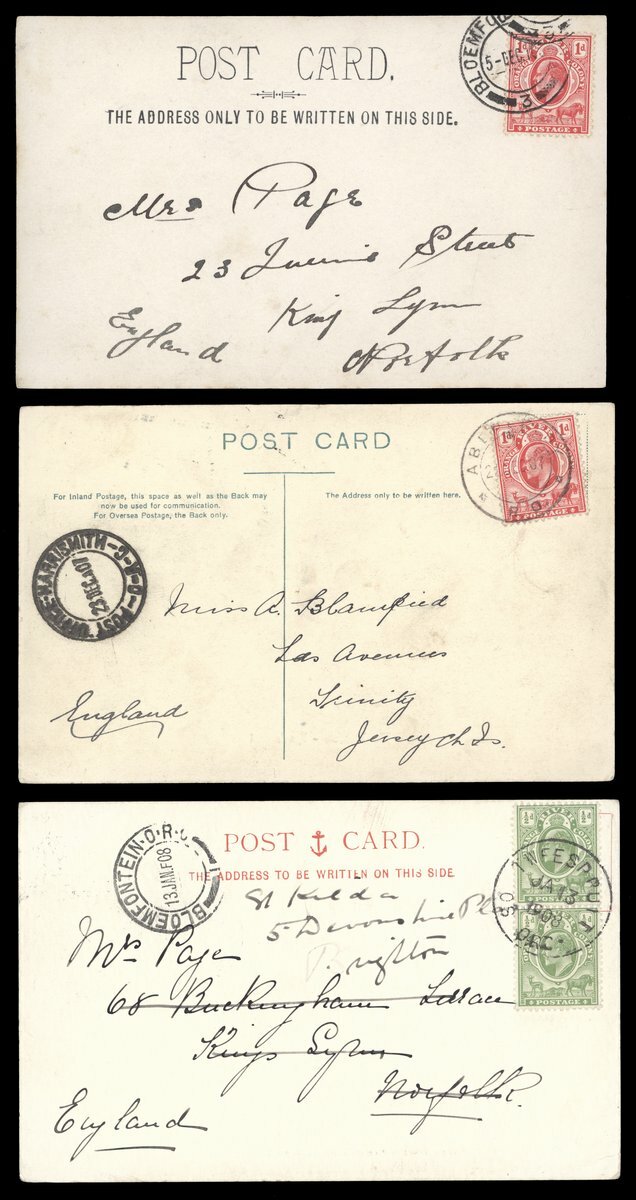 POST CARD.
THE ADDRESS ONLY TO BE WRITTEN ON THIS SIDE.
BLOEMFO
5-DEC
2
1d 1d
ORANGE COLONY
POSTAGE
Mrs Page
23 Street
King Lynn
England
Norfolk
POST CARD
For Inland Postage, this space as well as the Back may
now be used for communication.
For Oversea Postage, the Back only.
The Address only to be written here.
1d 1d
POSTAGE
POST OFFICE-HARRISMITH-O-R-C
23 DEC 07
Miss A. Blampied
Las Avenues
Trinity
Jersey Ch Is.
England
POST CARD.
THE ADDRESS TO BE WRITTEN ON THIS SIDE.
BLOEMFONTEIN·O·R·C
13 JAN. F 08
½d ½d
POSTAGE
TWEESPRUIT
JA 13
1908
ORC
½d ½d
POSTAGE
St Kilda
5 Devonshire Pl
Brighton
Mrs Page
68 Buckingham Terrace
Kings Lynn
Norfolk.
England